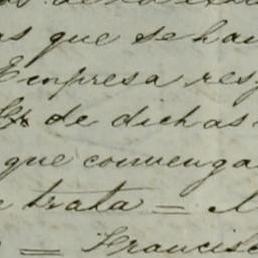 as que se han
Empresa res
de dichas
que convenga
trata =
= Francisc